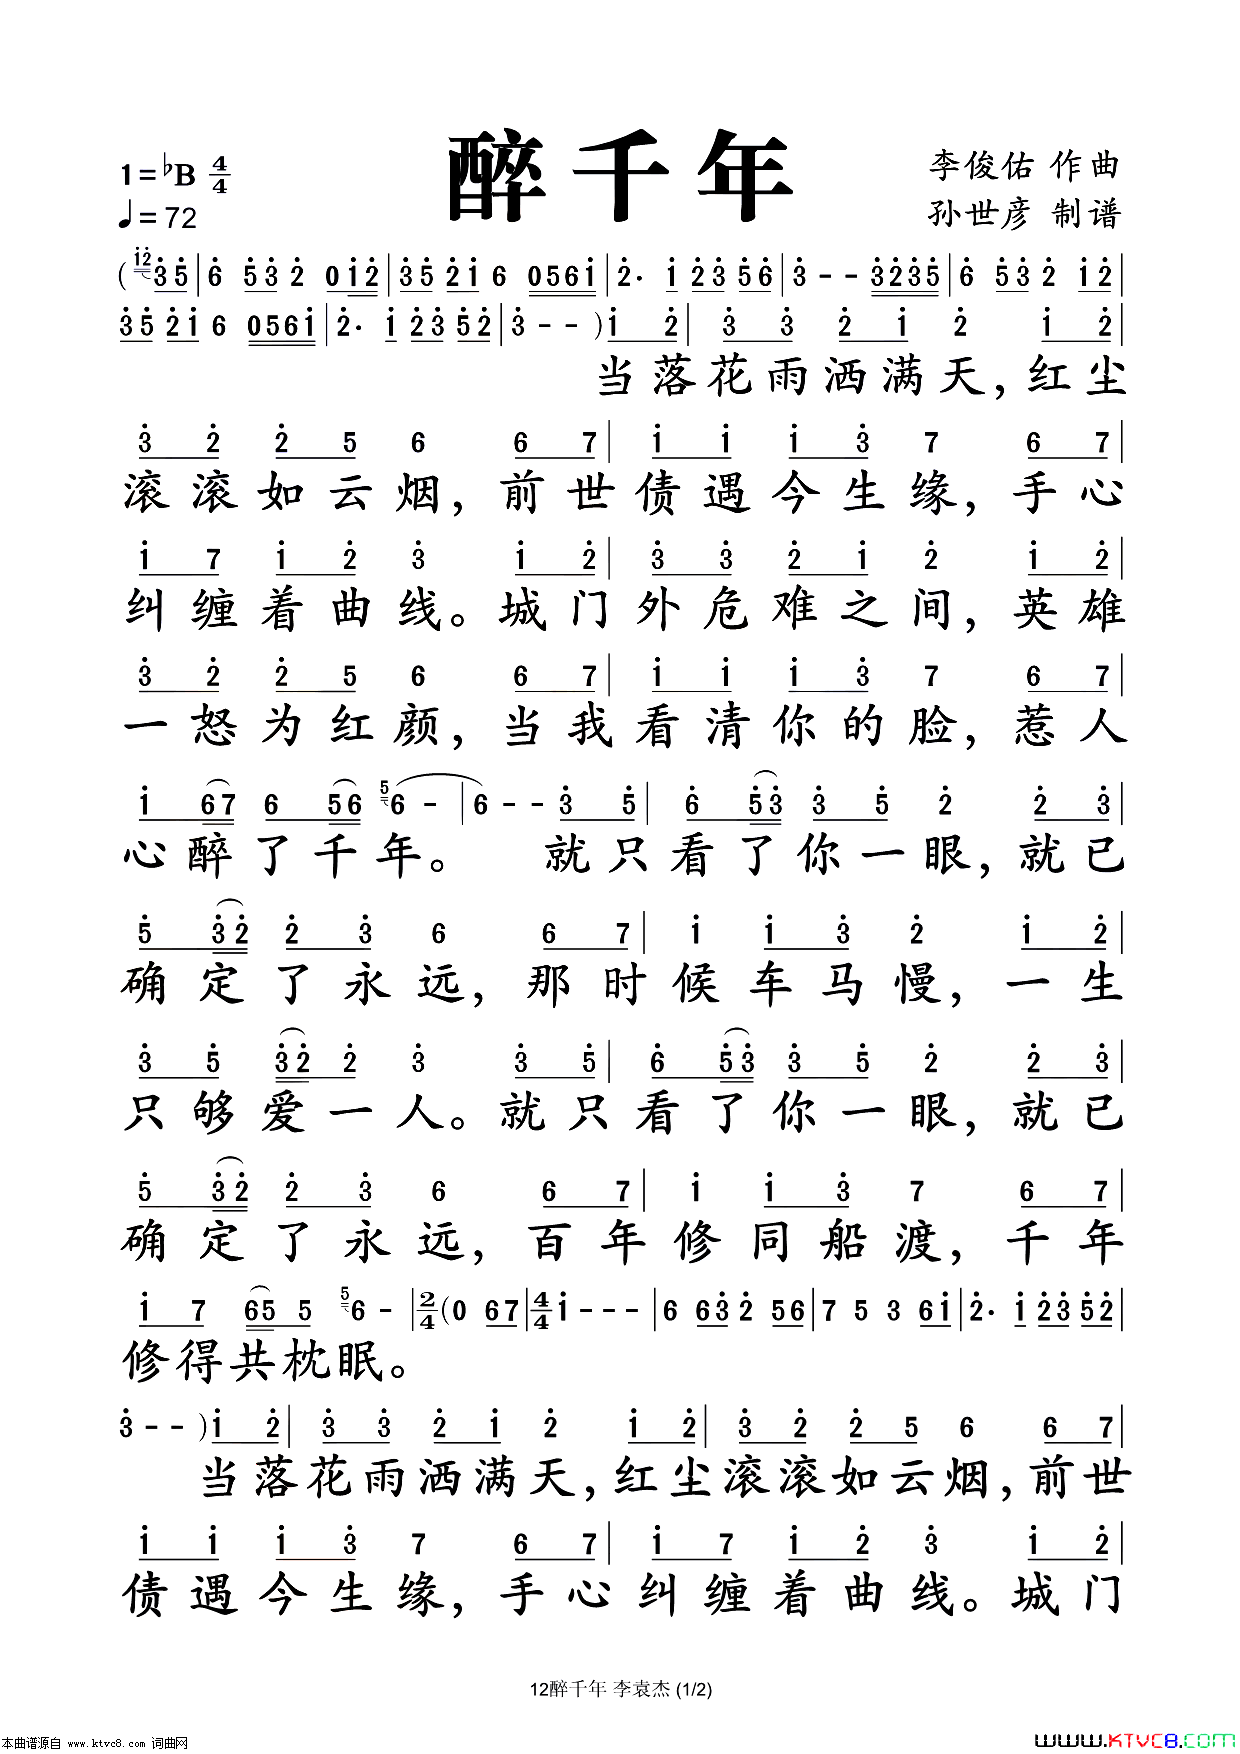 醉千年
1=♭B 4/4
♩=72
李俊佑 作曲
孙世彦 制谱
(12 35|6 532 012|3521 6 0561|2. 1 23 56|3 - - 3235|6 532 12|
3521 6 0561|2. 1 23 52|3 - - )1 2|3 3 2 1 2 1 2|
当落花雨洒满天,红尘
3 2 2 5 6 6 7|1 1 1 3 7 6 7|
滚滚如云烟,前世债遇今生缘,手心
1 7 1 2 3 1 2|3 3 2 1 2 1 2|
纠缠着曲线。城门外危难之间,英雄
3 2 2 5 6 6 7|1 1 1 3 7 6 7|
一怒为红颜,当我看清你的脸,惹人
1 67 6 56 5 6 - |6 - - 3 5|6 53 3 5 2 2 3|
心醉了千年。 就只看了你一眼,就已
5 32 2 3 6 6 7|1 1 3 2 1 2|
确定了永远,那时候车马慢,一生
3 5 32 2 3 3 5|6 53 3 5 2 2 3|
只够爱一人。就只看了你一眼,就已
5 32 2 3 6 6 7|1 1 3 7 6 7|
确定了永远,百年修同船渡,千年
1 7 65 5 5 6 - |2/4(0 67|4/4 1 - - - |6 632 56|7 5 3 61|2. 1 23 52|
修得共枕眠。
3 - - )1 2|3 3 2 1 2 1 2|3 2 2 5 6 6 7|
当落花雨洒满天,红尘滚滚如云烟,前世
1 1 1 3 7 6 7|1 7 1 2 3 1 2|
债遇今生缘,手心纠缠着曲线。城门
12醉千年 李袁杰 (1/2)
本曲谱源自 www.ktvc8.com 词曲网
www.KTVC8.com